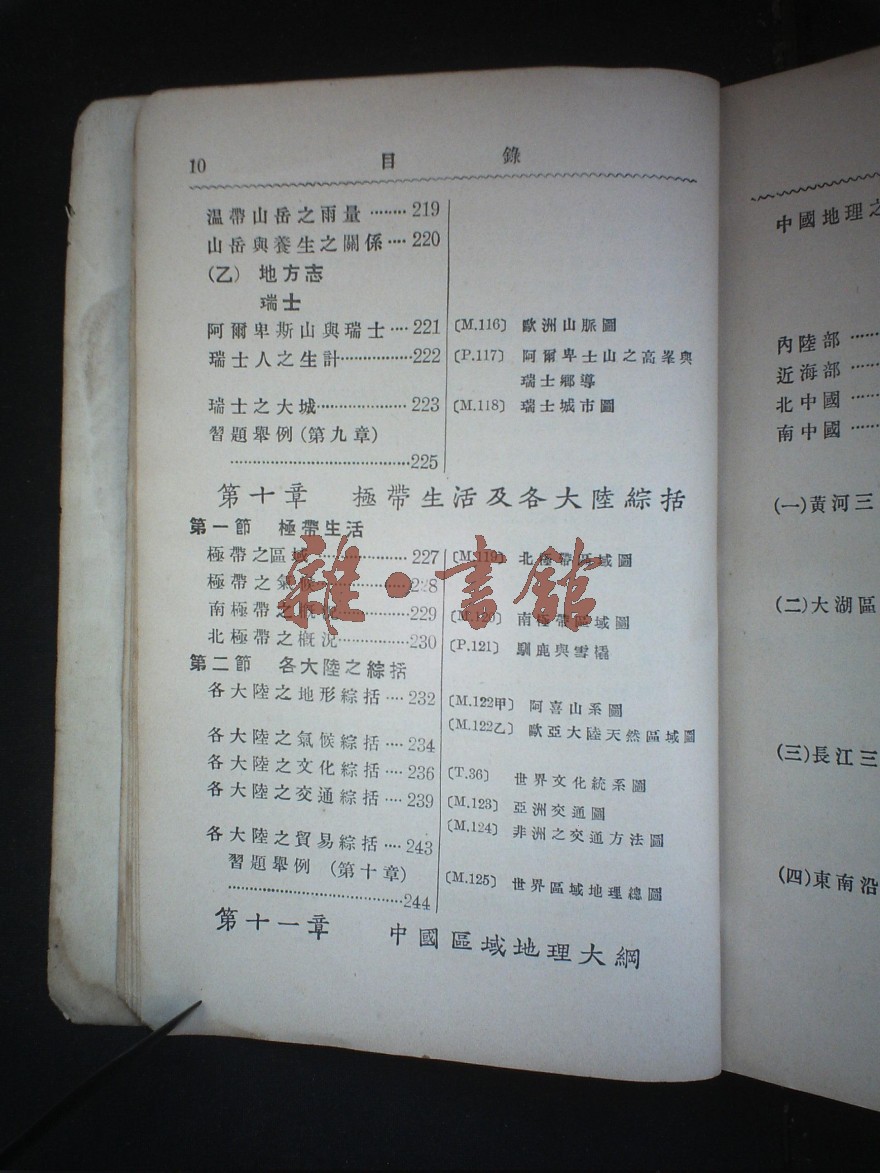 10 目錄
溫帶山岳之雨量 ········ 219
山岳與養生之關係 ···· 220
(乙) 地方志
瑞士
阿爾卑斯山與瑞士 ···· 221 〔M.116〕 歐洲山脈圖
瑞士人之生計 ················ 222 〔P.117〕 阿爾卑士山之高峯與
瑞士鄉導
瑞士之大城 ···················· 223 〔M.118〕 瑞士城市圖
習題舉例 (第九章)
········································ 225
第十章 極帶生活及各大陸綜括
第一節 極帶生活
極帶之區域 ···················· 227 〔M.119〕 北極帶區域圖
極帶之氣候 ···················· 228
南極帶之概況 ················ 229 〔M.120〕 南極帶區域圖
北極帶之概況 ················ 230 〔P.121〕 馴鹿與雪橇
第二節 各大陸之綜括
各大陸之地形綜括 ···· 232 〔M.122甲〕 阿喜山系圖
〔M.122乙〕 歐亞大陸天然區域圖
各大陸之氣候綜括 ···· 234
各大陸之文化綜括 ···· 236 〔T.36〕 世界文化統系圖
各大陸之交通綜括 ···· 239 〔M.123〕 亞洲交通圖
〔M.124〕 非洲之交通方法圖
各大陸之貿易綜括 ···· 243
習題舉例 (第十章)
········································ 244 〔M.125〕 世界區域地理總圖
第十一章 中國區域地理大綱
雜·書館
中國地理之
內陸部 ······
近海部 ······
北中國 ······
南中國 ······
(一)黃河三
(二)大湖區
(三)長江三
(四)東南沿